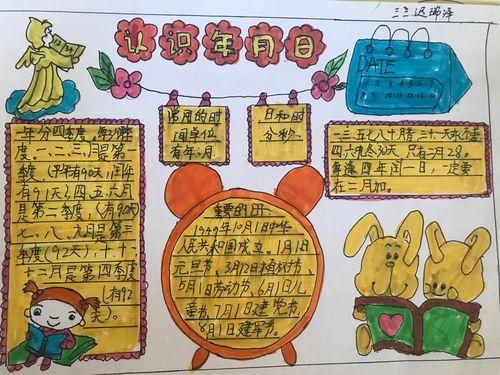 三三迟瑞泽
认识年月日
DATE
1 2 3 4 5 6 7
8 9 10 11 12 13 14
常用的时
间单位
有年、月、
日和时
分秒。
一年分四季度。每3个月季
度。一、二、三月是第一
季度(平年有90天,闰年
有91天)、四、五、六月
是第二季度,(有90天)
七、八、九月是第三
季度(92天),十、十一
十二月是第四季度
(有92
天)。
重要的日:
1949年10月1日中华
人民共和国成立。1月1日
元旦节、3月12日植树节、
5月1日劳动节、6月1日儿
童节、7月1日建党节、
8月1日建军节。
一三五七八十腊三十一天永不差
四六九冬30天,只有二月28。
每逢四年闰一日,一定要
在二月加。